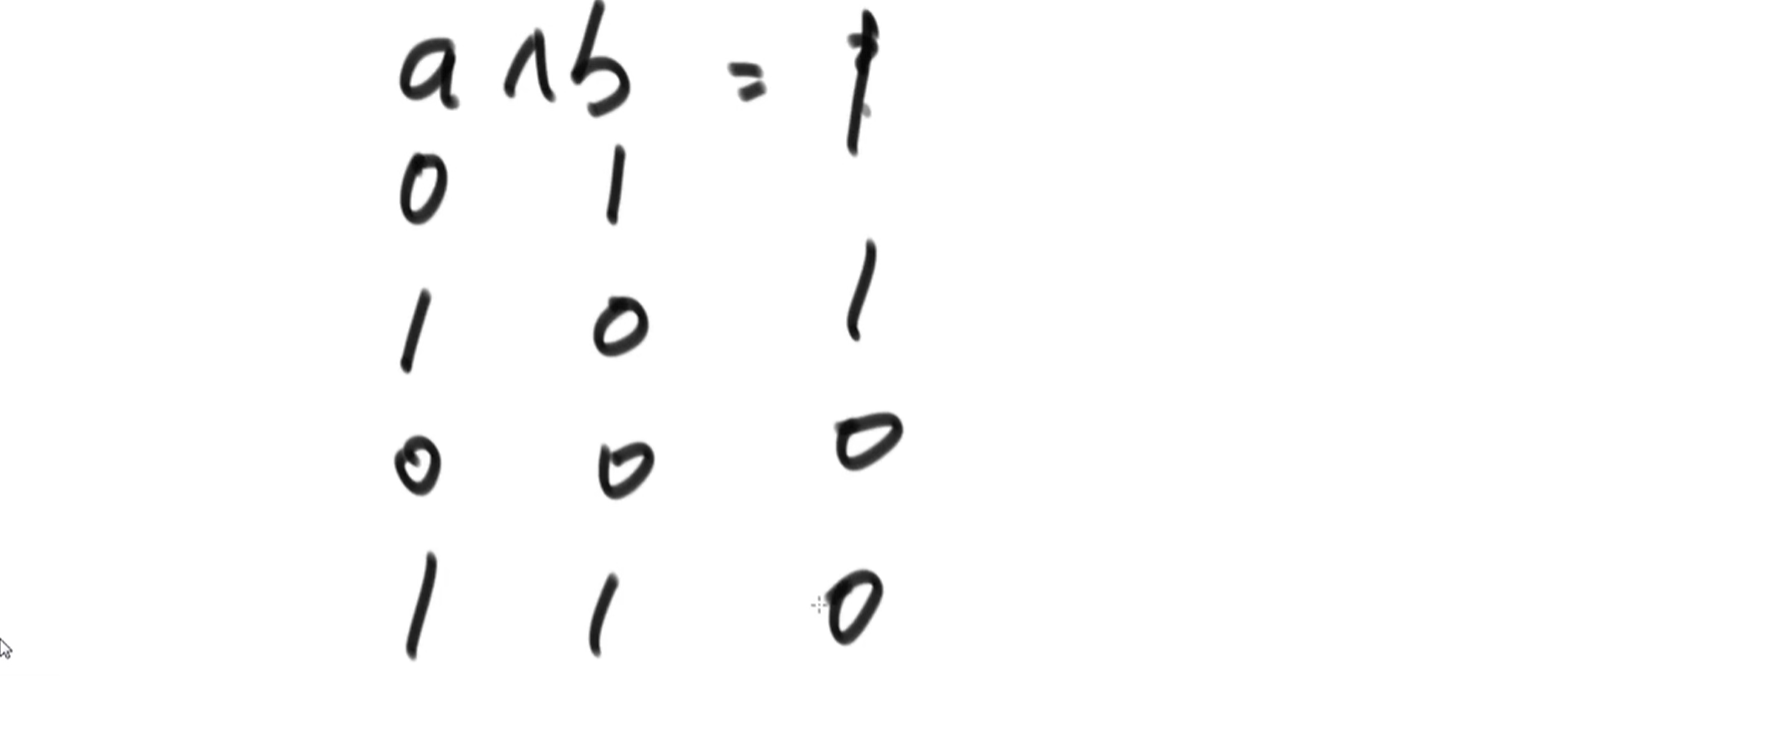 a ^ b = 1
0 1
1 0 1
0 0 0
1 1 0